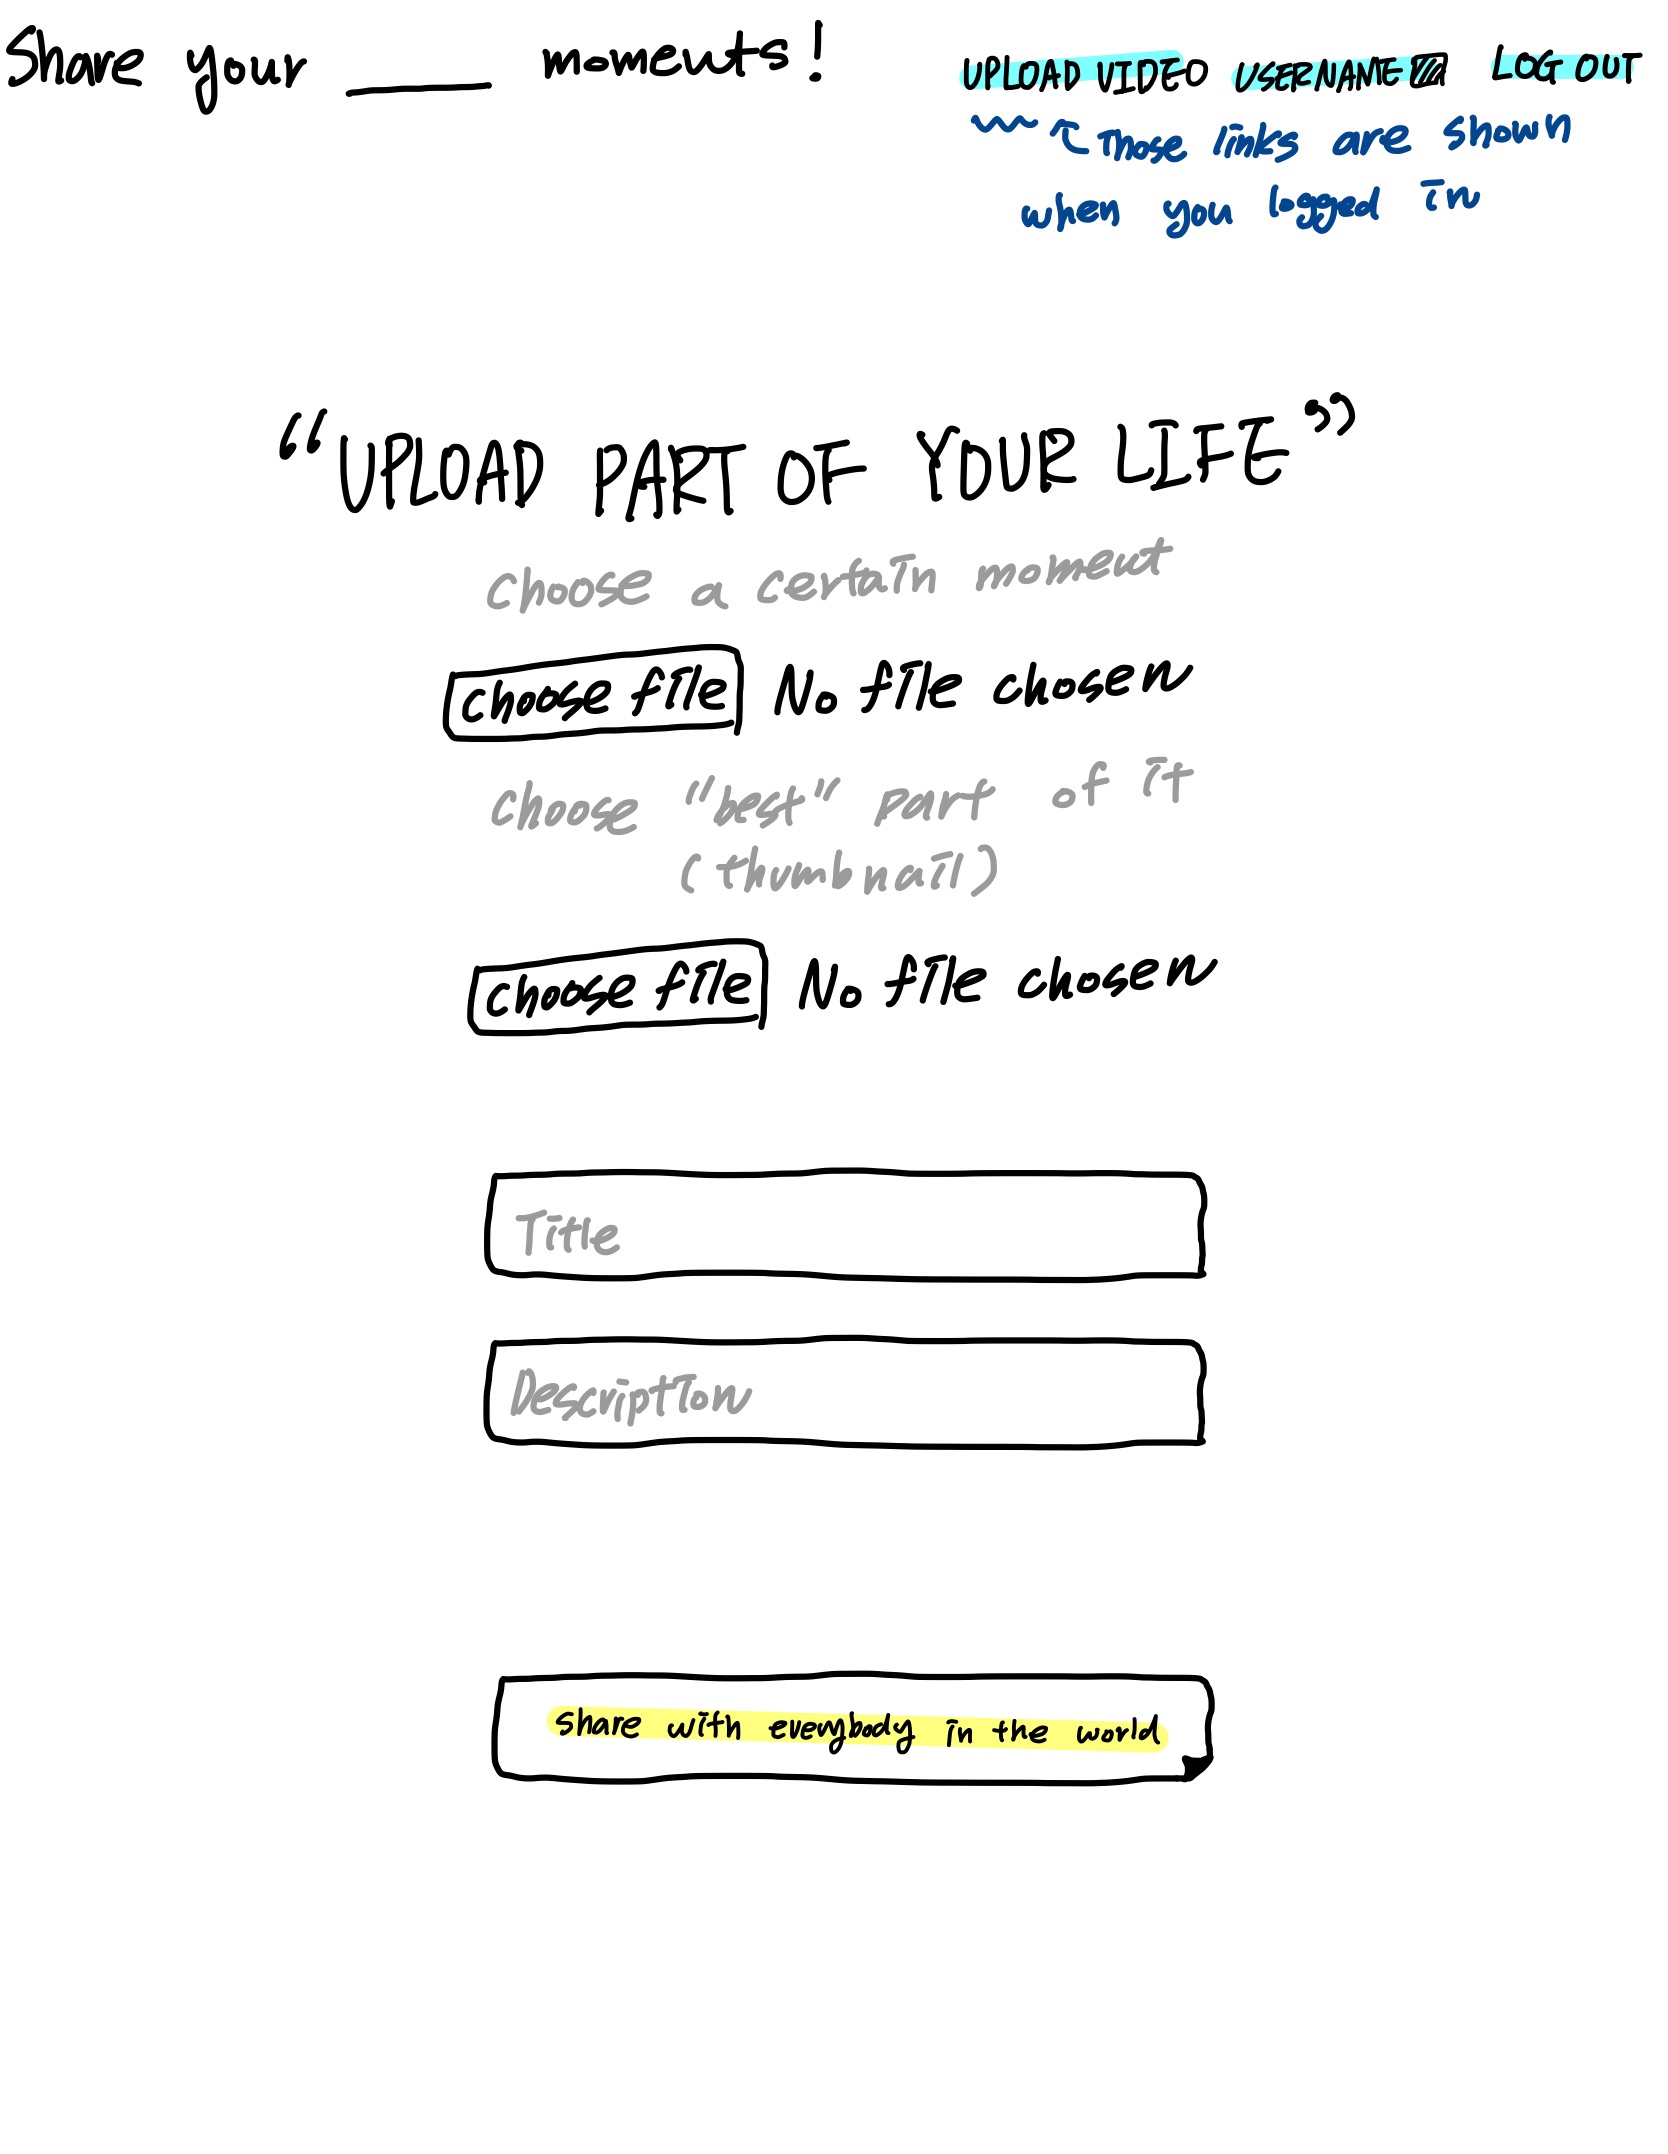 Share your ____ moments!
UPLOAD VIDEO USERNAME LOG OUT
Those links are shown
when you logged in
“UPLOAD PART OF YOUR LIFE”
choose a certain moment
choose file No file chosen
choose "best" part of it
(thumbnail)
choose file No file chosen
Title
Description
share with everybody in the world